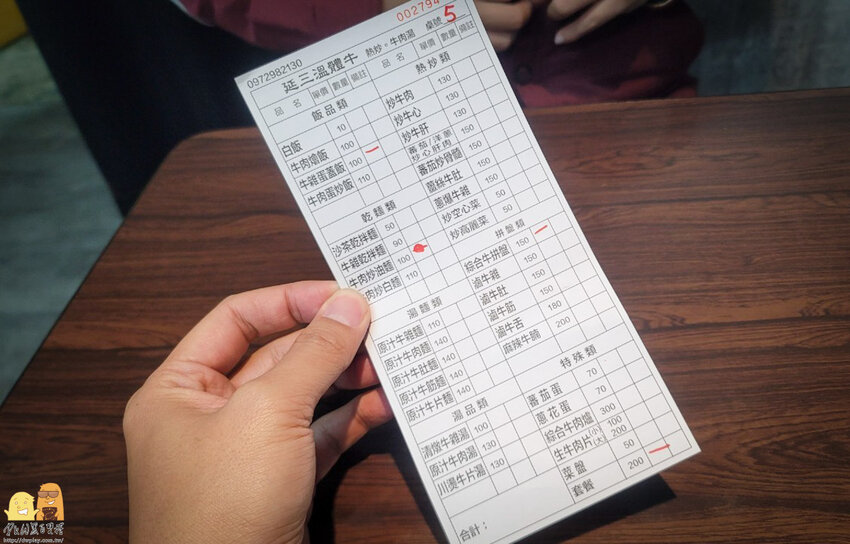 002794
0972982130
延三溫體牛 熱炒。牛肉湯 桌號 5
品名 單價 數量 備註 品名 單價 數量 備註
飯品類
白飯 10
牛肉燴飯 100
牛雜蛋蓋飯 100
牛肉蛋炒飯 110
乾麵類
沙茶乾拌麵 50
牛雜乾拌麵 90
牛肉炒油麵 100
肉炒白麵 110
湯麵類
原汁牛雜麵 110
原汁牛肉麵 140
原汁牛肚麵 140
原汁牛筋麵 140
原汁牛片麵 140
湯品類
清燉牛雜湯 100
原汁牛肉湯 130
川燙牛片湯 130
合計：
熱炒類
炒牛肉 130
炒牛心 130
炒牛肝 130
蕃茄/洋蔥
炒心肝肉 150
蕃茄炒骨髓 150
薑絲牛肚 150
蔥爆牛雜 150
炒空心菜 50
炒高麗菜 50
拼盤類
綜合牛拼盤 150
滷牛雜 150
滷牛肚 150
滷牛筋 150
滷牛舌 180
麻辣牛腩 200
特殊類
蕃茄蛋 70
蔥花蛋 70
綜合牛肉爐 300
生牛肉片 (小) 100
(大) 200
菜盤 50
套餐 200
http://dwplay.com.tw/